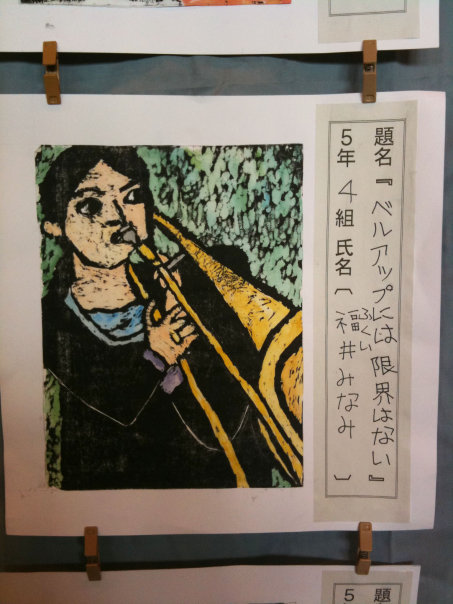 題名『ベルアップには限界はない』
5年 4組 氏名〔福井みなみ〕
ふくい
題
5